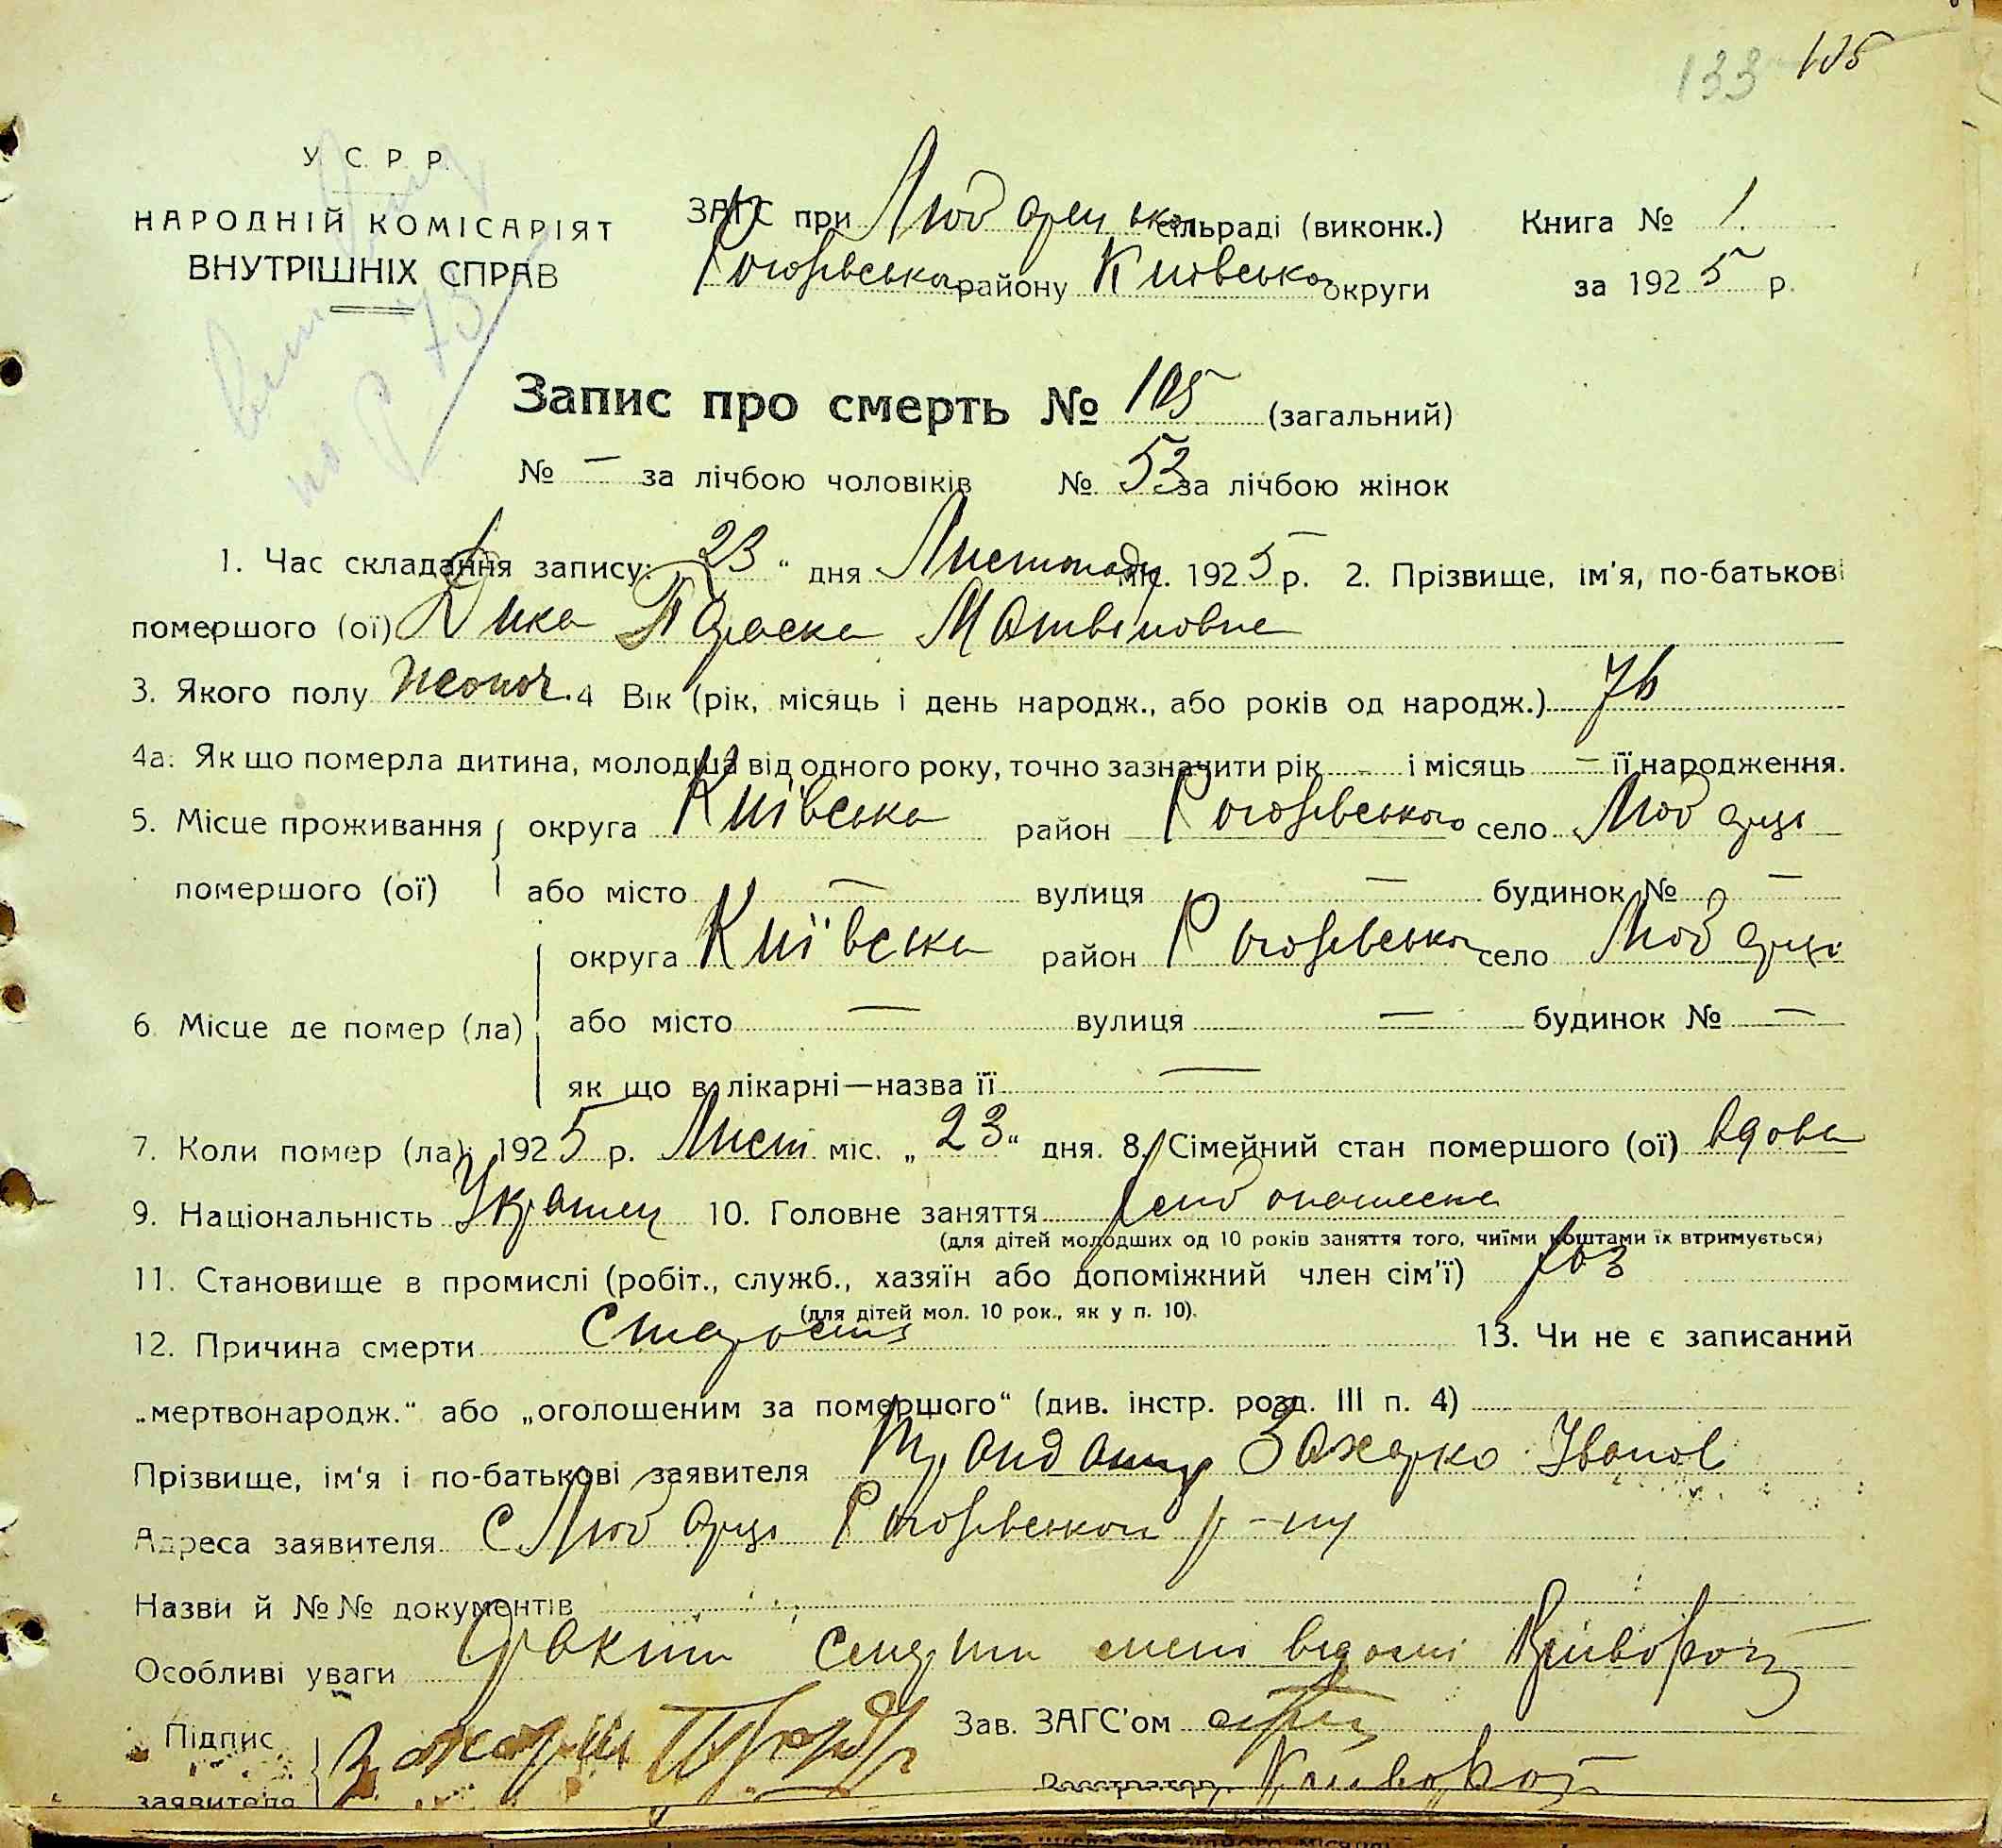 133 105
У. С. Р. Р.
НАРОДНІЙ КОМІСАРІЯТ
ВНУТРІШНІХ СПРАВ
ЗАГС при Любарецькій сільраді (виконк.)
Рогозівського району Київської округи
Книга № 1.
за 1925 р.
Запис про смерть № 105 (загальний)
№ — за лічбою чоловіків № 53 за лічбою жінок
1. Час складання запису: 23 " дня Листопаду міс. 1925 р. 2. Прізвище, ім'я, по-батькові
помершого (ої) Дика Параска Матвіновна
3. Якого полу жіноч. 4 Вік (рік, місяць і день народж., або років од народж.) 76
4а. Як що померла дитина, молодша від одного року, точно зазначити рік - і місяць — її народження.
5. Місце проживання округа Київська район Рогозівського село Любарці
помершого (ої) або місто — вулиця — будинок № —
округа Київська район Рогозівсько село Любарці
6. Місце де помер (ла) або місто — вулиця — будинок № —
як що в лікарні—назва її —
7. Коли помер (ла): 1925 р. Лист міс. „ 23 " дня. 8. Сімейний стан помершого (ої) вдова
9. Національність Украинец 10. Головне заняття
(для дітей молодших од 10 років заняття того, чиїми коштами їх втримується)
11. Становище в промислі (робіт., служб., хазяїн або допоміжний член сім'ї) хоз
(для дітей мол. 10 рок., як у п. 10).
12. Причина смерти Старость 13. Чи не є записаний
„мертвонародж." або „оголошеним за помершого" (див. інстр. розд. III п. 4)
Прізвище, ім'я і по-батькові заявителя Захарко Іванов
Адреса заявителя с Любарці Рогозівського р-ну
Назви й №№ документів
Особливі уваги Факти смерти мені відомі
Підпис
заявителя
Зав. ЗАГС'ом
Реєстратор